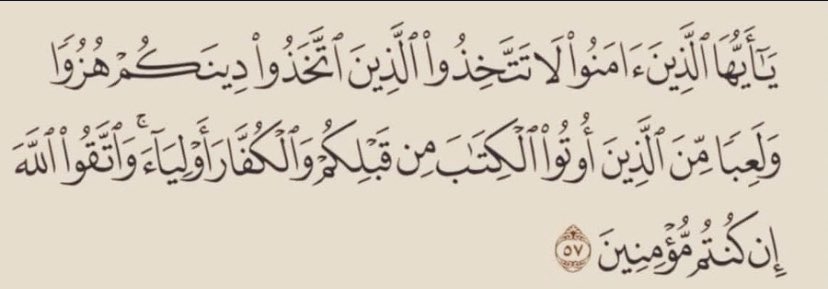 يَـٰٓأَيُّهَا ٱلَّذِينَ ءَامَنُوا۟ لَا تَتَّخِذُوا۟ ٱلَّذِينَ ٱتَّخَذُوا۟ دِينَكُمْ هُزُوًا
وَلَعِبًا مِّنَ ٱلَّذِينَ أُوتُوا۟ ٱلْكِتَـٰبَ مِن قَبْلِكُمْ وَٱلْكُفَّارَ أَوْلِيَآءَ ۚ وَٱتَّقُوا۟ ٱللَّهَ
إِن كُنتُم مُّؤْمِنِينَ ٥٧